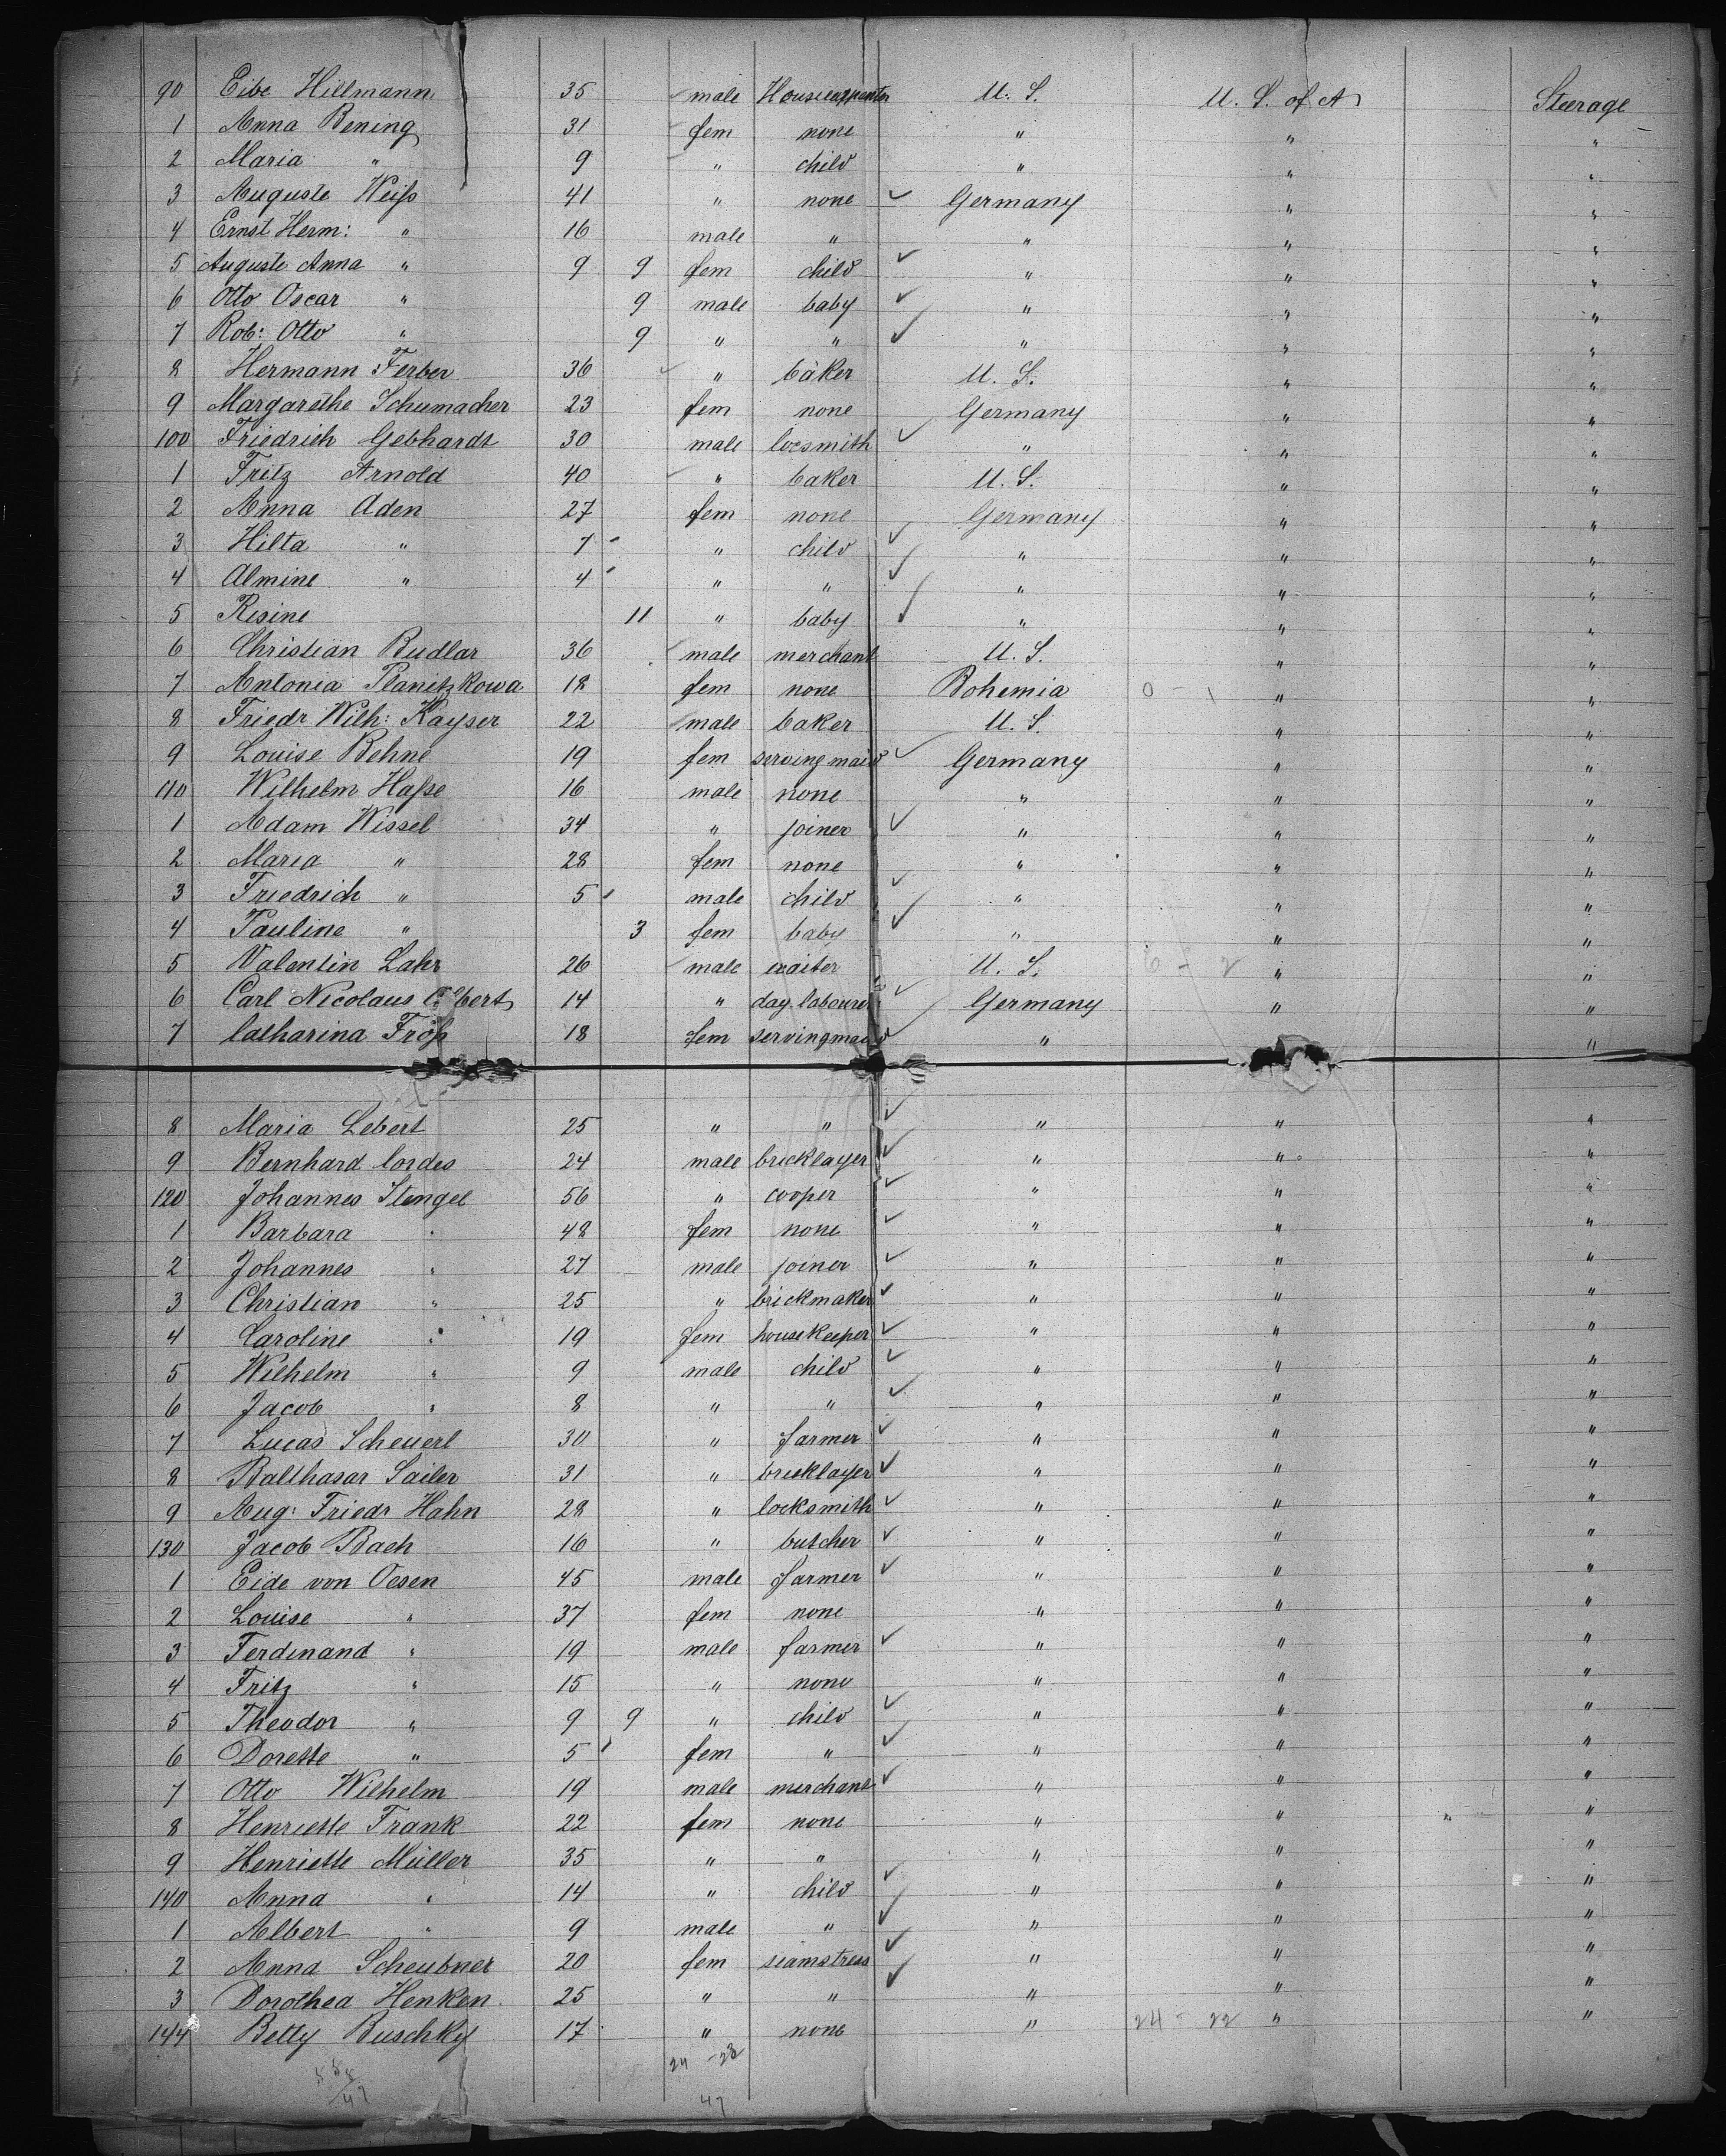 90 Eibe Hillmann 35 male Housecarpenter U. S. U. S. of A Steerage
1 Anna Bening 31 fem none " " "
2 Maria " 9 " child " " "
3 Auguste Weiſs 41 " none ✓ Germany " "
4 Ernst Herm: " 16 male " " " "
5 Auguste Anna " 9 9 fem child ✓ " " "
6 Otto Oscar " 9 male baby ✓ " " "
7 Rob: Otto " 9 " " ✓ " " "
8 Hermann Ferber 36 " baker U. S. " "
9 Margarethe Schumacher 23 fem none Germany " "
100 Friedrich Gebhardt 30 male locsmith ✓ " " "
1 Fritz Arnold 40 " baker U. S. " "
2 Anna Aden 27 fem none Germany " "
3 Hilta " 7 " child ✓ " " "
4 Almine " 4 " " ✓ " " "
5 Resine 11 " baby ✓ " " "
6 Christian Budlar 36 male merchant U. S. " "
7 Antonia Planitzkowa 18 fem none Bohemia 0 - 1 " "
8 Friedr Wilh: Kayser 22 male baker U. S. " "
9 Louise Behne 19 fem serving maid ✓ Germany " "
110 Wilhelm Haſse 16 male none " " "
1 Adam Wissel 34 " joiner ✓ " " "
2 Maria " 28 fem none " " "
3 Friedrich " 5 male child ✓ " " "
4 Pauline " 3 fem baby ✓ " " "
5 Valentin Lahr 26 male waiter U. S. 6 - 2 " "
6 Carl Nicolaus 14 " day labourer ✓ Germany " "
7 Catharina Fröſs 18 fem servingmaid ✓ " " "
8 Maria Lebert 25 " " ✓ " " "
9 Bernhard Cordes 24 male bricklayer ✓ " " "
120 Johannes Stengel 56 " cooper ✓ " " "
1 Barbara " 48 fem none ✓ " " "
2 Johannes " 27 male joiner ✓ " " "
3 Christian " 25 " brickmaker ✓ " " "
4 Caroline " 19 fem housekeeper ✓ " " "
5 Wilhelm " 9 male child ✓ " " "
6 Jacob " 8 " " ✓ " " "
7 Lucas Scheuerl 30 " farmer ✓ " " "
8 Balthasar Sailer 31 " bricklayer ✓ " " "
9 Aug: Friedr Hahn 28 " locksmith ✓ " " "
130 Jacob Bach 16 " butcher ✓ " " "
1 Eide von Oesen 45 male farmer ✓ " " "
2 Louise " 37 fem none " " "
3 Ferdinand " 19 male farmer ✓ " " "
4 Fritz " 15 " none " " "
5 Theodor " 9 9 " child ✓ " " "
6 Dorette " 5 fem " ✓ " " "
7 Otto Wilhelm 19 male merchant ✓ " " "
8 Henriette Frank 22 fem none " " "
9 Henriette Müller 35 " " " " "
140 Anna " 14 " child ✓ " " "
1 Albert " 9 male " ✓ " " "
2 Anna Scheubner 20 fem seamstress ✓ " " "
3 Dorothea Henken 25 " " ✓ " " "
144 Betty Buschky 17 " none " 24 - 22 " "
24 - 23
47
47